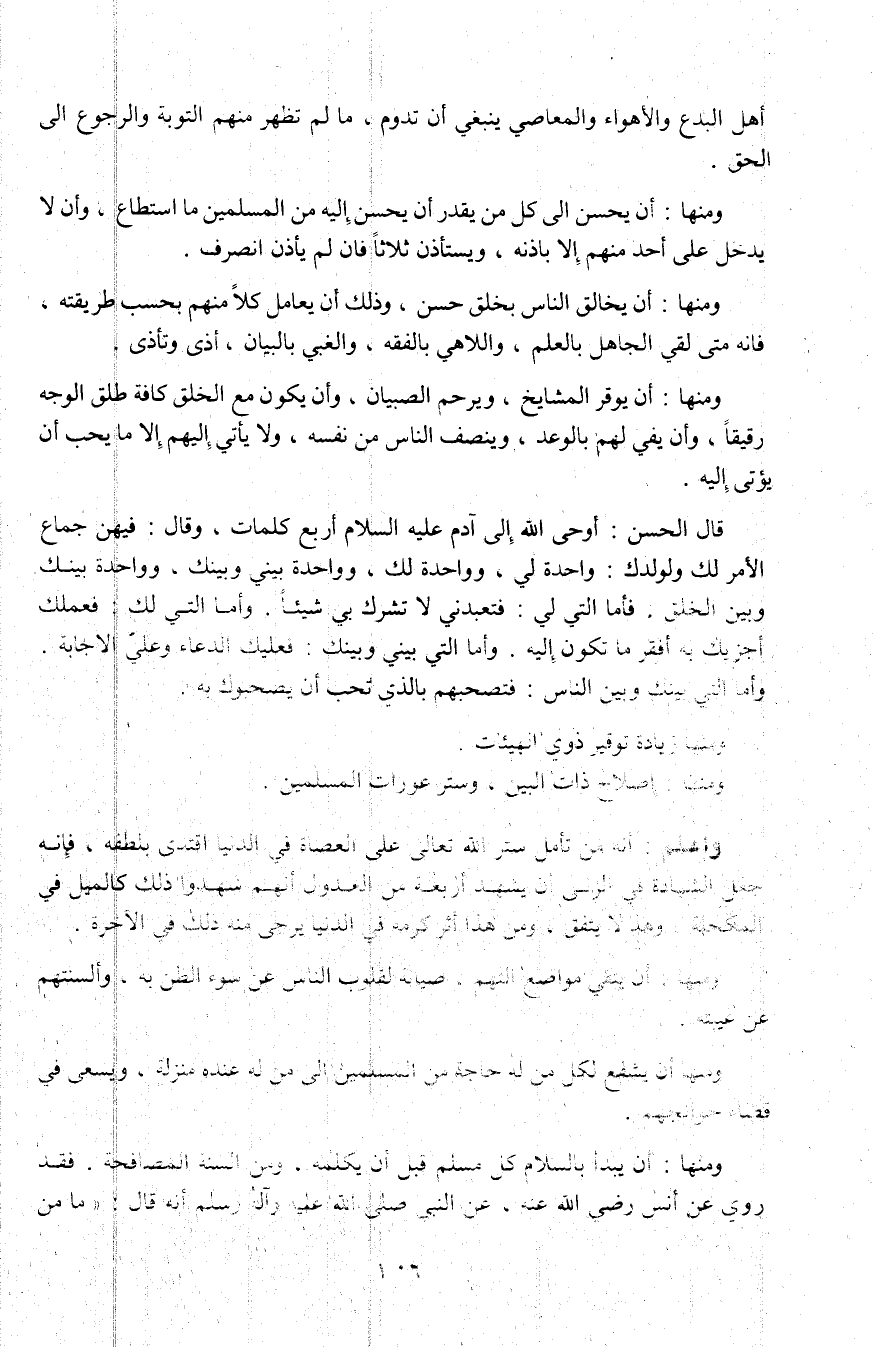 أهل البدع والأهواء والمعاصي ينبغي أن تدوم ، ما لم تظهر منهم التوبة والرجوع الى
الحق .
ومنها : أن يحسن الى كل من يقدر أن يحسن إليه من المسلمين ما استطاع ، وأن لا
يدخل على أحد منهم إلا باذنه ، ويستأذن ثلاثاً فان لم يأذن انصرف .
ومنها : أن يخالق الناس بخلق حسن ، وذلك أن يعامل كلاً منهم بحسب طريقته ،
فانه متى لقي الجاهل بالعلم ، واللاهي بالفقه ، والغبي بالبيان ، أذى وتأذى .
ومنها : أن يوقر المشايخ ، ويرحم الصبيان ، وأن يكون مع الخلق كافة طلق الوجه
رقيقاً ، وأن يفي لهم بالوعد ، وينصف الناس من نفسه ، ولا يأتي إليهم إلا ما يحب أن
يؤتى إليه .
قال الحسن : أوحى الله إلى آدم عليه السلام أربع كلمات ، وقال : فيهن جماع
الأمر لك ولولدك : واحدة لي ، وواحدة لك ، وواحدة بيني وبينك ، وواحدة بينك
وبين الخلق . فأما التي لي : فتعبدني لا تشرك بي شيئاً . وأما التي لك : فعملك
أجزيك به أفقر ما تكون إليه . وأما التي بيني وبينك : فعليك الدعاء وعليّ الاجابة .
وأما التي بينك وبين الناس : فتصحبهم بالذي تحب أن يصحبوك به .
ومنها زيادة توقير ذوي الهيئات .
ومنها : إصلاح ذات البين ، وستر عورات المسلمين .
واعلم : أنه من تأمل ستر الله تعالى على العصاة في الدنيا اقتدى بلطفه ، فإنه
جعل الشهادة في الزنى أن يشهد أربعة من العدول أنهم شهدوا ذلك كالميل في
المكحلة . وهذا لا يتفق ، ومن هذا أثر كرمه في الدنيا يرجى منه ذلك في الآخرة .
ومنها : أن يتقي مواضع التهم ، صيانة لقلوب الناس عن سوء الظن به ، وألسنتهم
عن غيبته .
ومنها أن يشفع لكل من له حاجة من المسلمين الى من له عنده منزلة ، ويسعى في
قضاء حوائجهم .
ومنها : أن يبدأ بالسلام كل مسلم قبل أن يكلمه . ومن السنة المصافحة . فقد
روي عن أنس رضي الله عنه ، عن النبي صلى الله عليه وآله وسلم أنه قال : « ما من
١٠٦